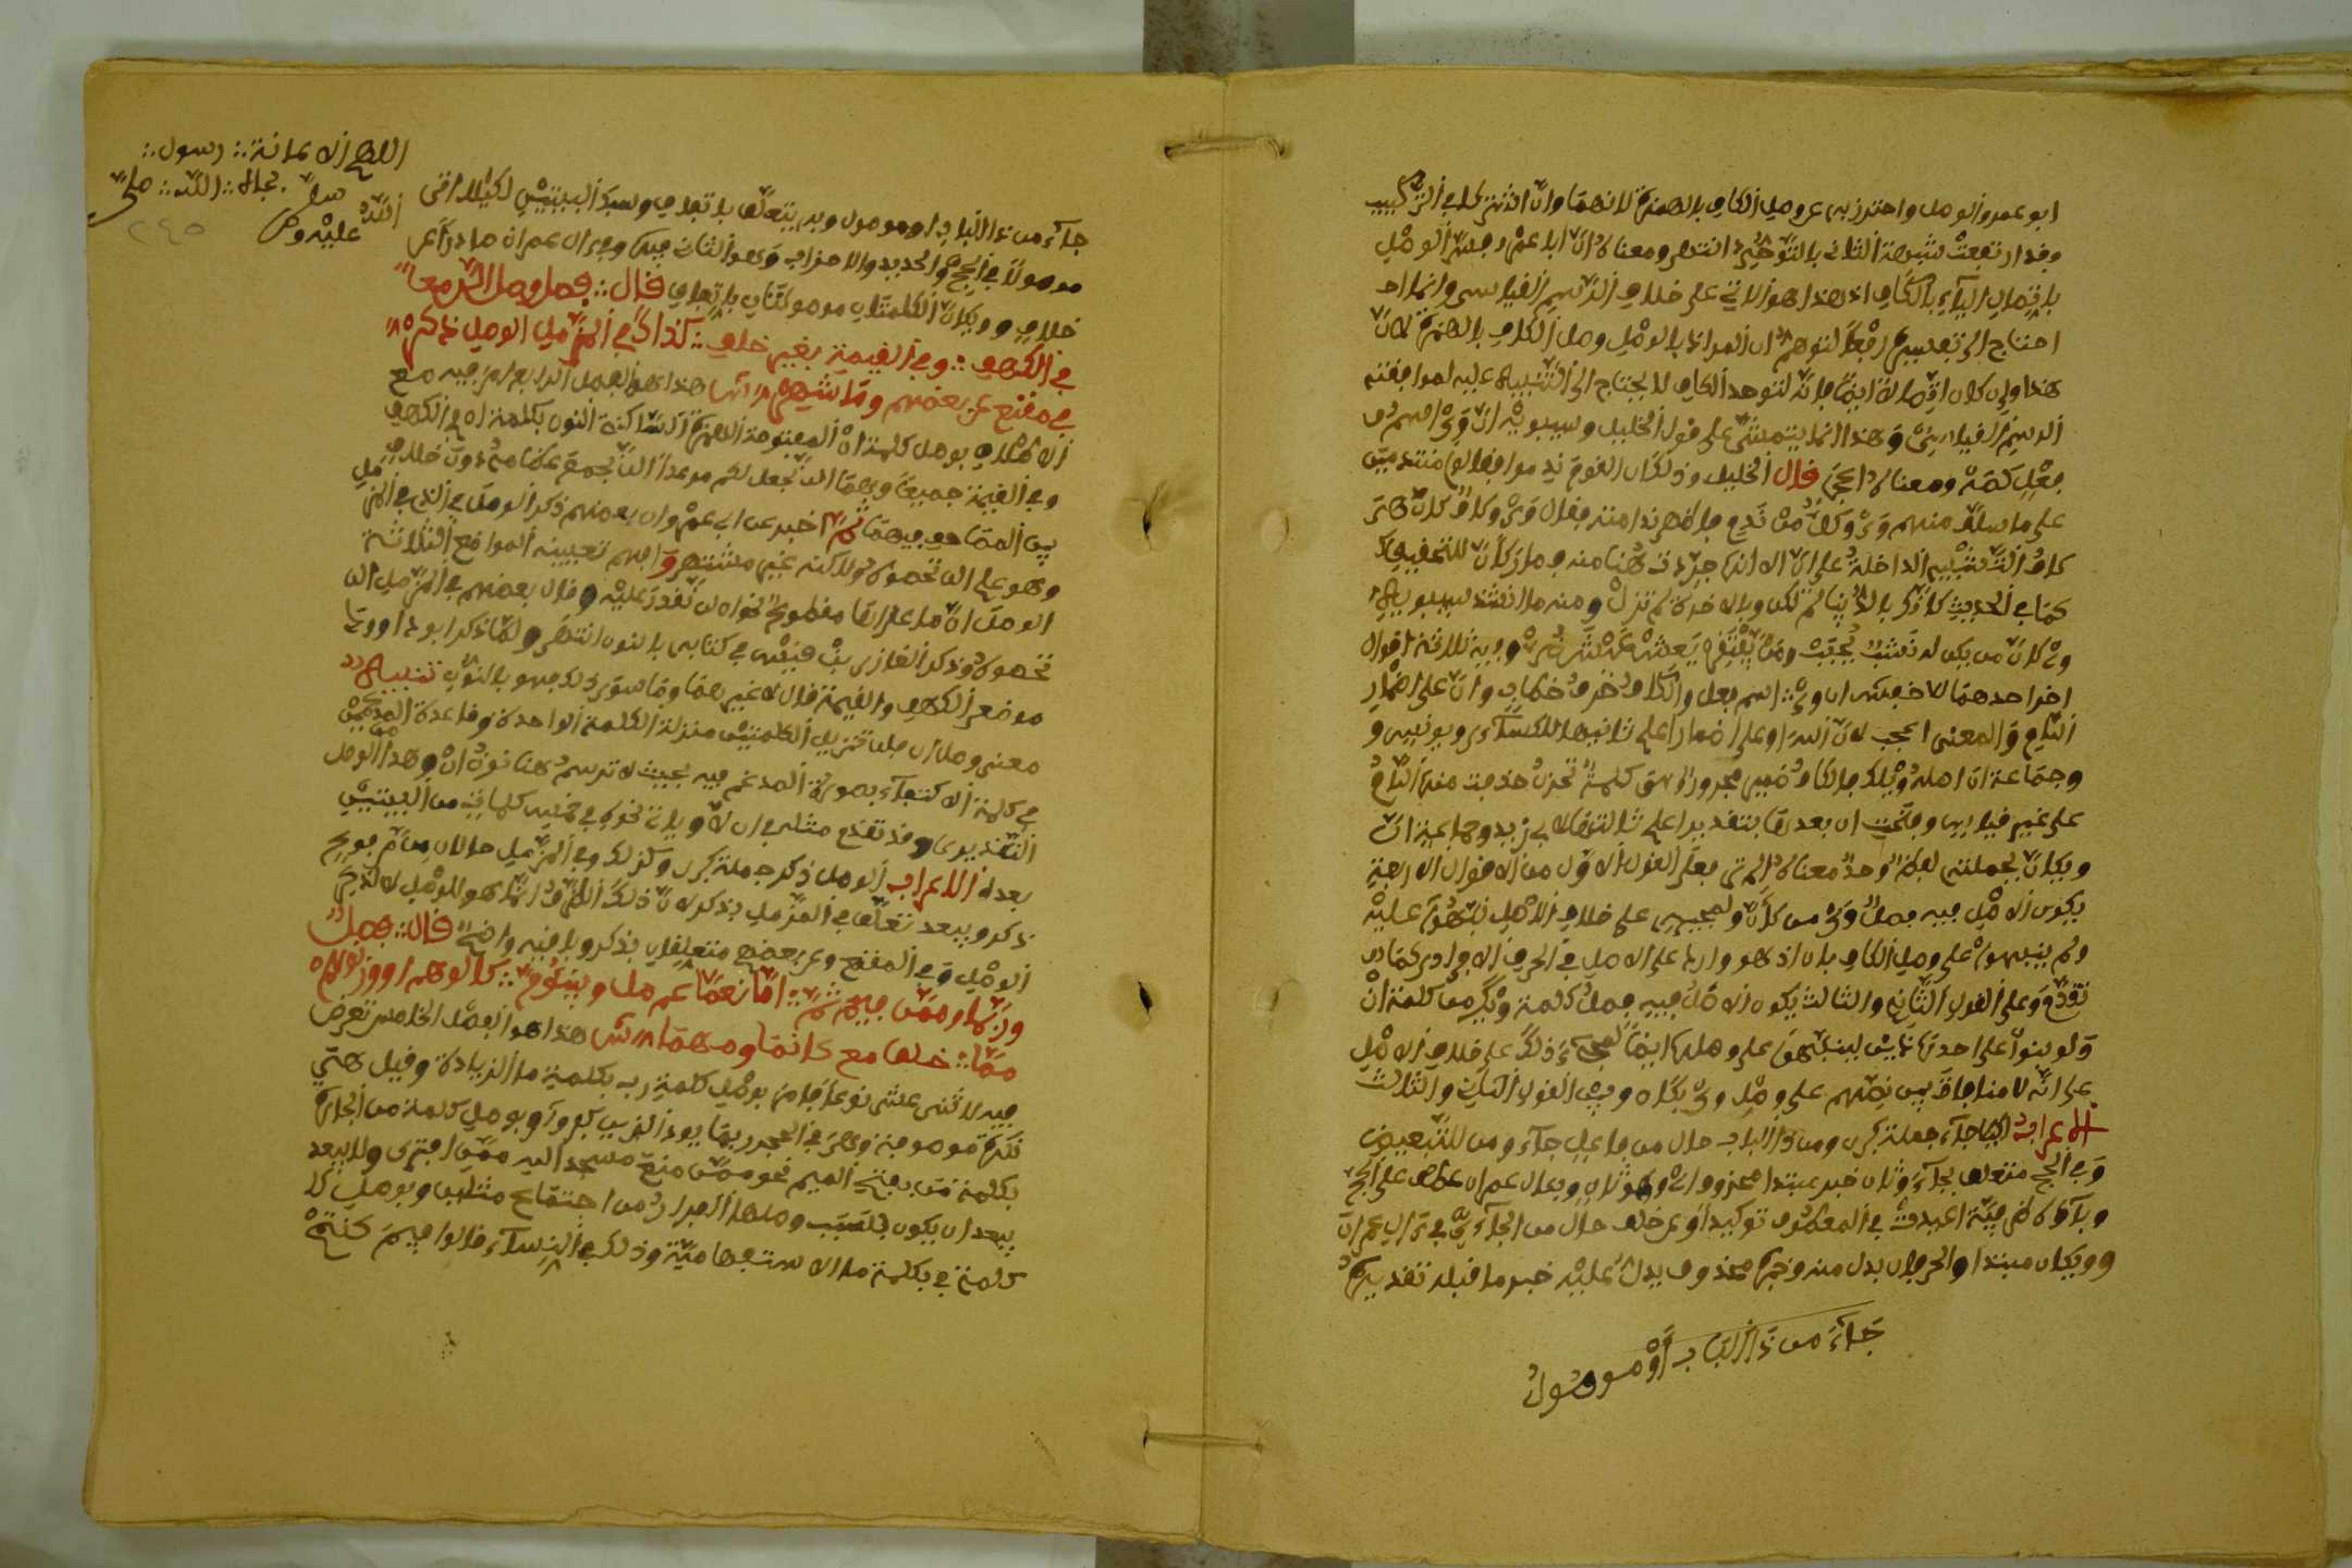 ابو عمرو الوصل واحترز به عن وصل الكاف بالهمزة لانهما وان اشتركا في التركيب
وقد ارتفعت شبهة الثاني بالتوجيه انتهى ومعناه ان ابا عمرو فسر الوصل
باتصال الياء بالكاف اذ هذا هو الاتي على خلاف الرسم القياسي وانما
احتاج الى تفسيره رفعا لتوهم ان المراد بالوصل وصل الكاف بالهمزة لان
هذا وان كان اتصاله ايضا فانه لتوحد الكاف لا يحتاج الى التنبيه عليه لموافقته
الرسم القياسي وهذا انما يتمشى على قول الخليل وسيبويه ان وي اسم
فعل كصه ومعناه اعجب قال الخليل وذلك ان القوم ندموا فقالوا متندمين
على ما سلف منهم وي وكل من ندم فاظهر ندامته فقال وي وكاف كان هي
كاف التشبيه الداخلة على ان الا انها جردت هنا منه وصار كان للتحقيق
كما في الحديث كانك بالدنيا لم تكن وبالاخرة لم تزل ومنه ما انشد سيبويه
وي كان من يكن له نشب يحبب ومن يفتقر يعش عيش ضر وفيه ثلاثة اقوال
اخر احدها للاخفش ان وي اسم فعل والكاف حرف خطاب وان على اضمار
اللام والمعنى اعجب لان الله
وجماعة ان اصله ويلك فالكاف ضمير مجرور
على غير قياس وفتحت ان بعدها بتقدير اعلم ثالثها لابي زيد وجماعة ان
ويكان بجملته لفظ واحد معناه الم تر فعلى القول الاول من الاقوال الاربعة
يكون الاصل فيه فصل وي من كان ولمجيئه على خلاف الاصل نبهوا عليه
ولم ينبهوا على وصل الكاف بان اذ هو وارد على الاصل في الحرف الافرادي كما
تقدم وعلى القول الثاني والثالث يكون الاصل فيه فصل كلمة ويك من كلمة ان
ولو بنوا على احد هاذين لينبهوا على وصلها ايضا لمجيء ذلك على خلاف الاصل
على انه لا منافاة بين نصهم على وصل وي بكان وبين القول الثاني والثالث
الاعراب جاء جملة كبرى ومن ذا الباب حال من فاعل جاء ومن للتبعيض
وفي الحج متعلق بجاء وثان خبر مبتدا محذوف اي وهو ثان وبال عمران عطف على الحج
وباؤه ظرفية اعيدت في المعطوف توكيدا وعن خلف حال من الجاءي في ال عمران
وويكان مبتدا والحرفان بدل منه وخبره محذوف يدل عليه خبر ما قبله تقديره
جاء من ذا الباب او موصول
اللهم الاعانة رسول
بجاه الله صلى
الله عليه وسلم
٢٤٥
جاء من ذا الباب او موصول وبه يتعلق باتفاق وسبك البيتين لكيلا اتى
موصولا في الحج والحديد والاحزاب وهو الثاني فيها وفي ال عمران صادرا عن
خلاف وويكان الكلمتان موصولتان باتفاق قال فصل وصل الن معا
في الكهف وفي القيمة بغير خلف كذاك في المزمل الوصل ذكر
في مقنع عن بعضهم وما شهر ش هذا هو الفصل الرابع امر فيه مع
الاطلاق بوصل كلمة ان المفتوحة الهمزة الساكنة النون بكلمة لن في الكهف
وفي القيمة جميعا وهما الن نجعل لكم موعدا الن نجمع عظامه دون خلاف
بين المصاحف فيهما ثم اخبر عن ابي عمرو ان بعضهم ذكر الوصل في الذي في المزمل
وهو علم الن تحصوه ولكنه غير مشتهر وابهم تعيينه المواضع الثلاثة
الوصل ان ما عداها مقطوع نحو ان لن نقدر عليه وقال بعضهم في المزمل الن
تحصوه وذكر الغازي بن قيس في كتابه بالنون انتهى ولما ذكر ابو داوود
موضع الكهف والقيمة قال لا غيرهما وما سوى ذلك فهو بالنون تنبيه
معنى وصل ان بلن تنزيل الكلمتين منزلة الكلمة الواحدة وقاعدة المدغمين
في كلمة الاكتفاء بصورة المدغم فيه بحيث لا ترسم هنا نون ان وهذا الوصل
التقديري وقد تقدم مثله في ان لا وياتي نحوه في كلمات من البيتين
بعده الاعراب الوصل ذكر جملة كبرى وكذلك وفي المزمل حالان من مرفوع
ذكر ويبعد تعلق في المزمل بذكر لان ذلك الظرف انما هو للوصل لا لذكر
الوصل وفي المقنع وعن بعضهم متعلقان بذكر وباقيه واضح قال فصل
وربما وممن فيم ثم اما نعما عم صل ويبنؤم كالوهم او وزنوهم
مما خلق مع كانما ومهما ش هذا هو الفصل الخامس تعرض
فيه لاثني عشر نوعا فامر بوصل كلمة رب بكلمة ما الزيادة وقيل هي
نكرة موصوفة وهي في الحجر ربما يود الذين كفروا وبوصل كلمة من الجارة
بكلمة من بفتح الميم نحو ممن منع مسجد اليه ممن افترى ولا يبعد
يبعد ان يكون السبب وصلها الفرار من اجتماع مثلين وبوصل
كلمة في بكلمة ما الاستفهامية وذلك في النساء قالوا فيم كنتم